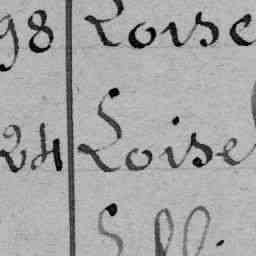 98 Loise
24 Loisel